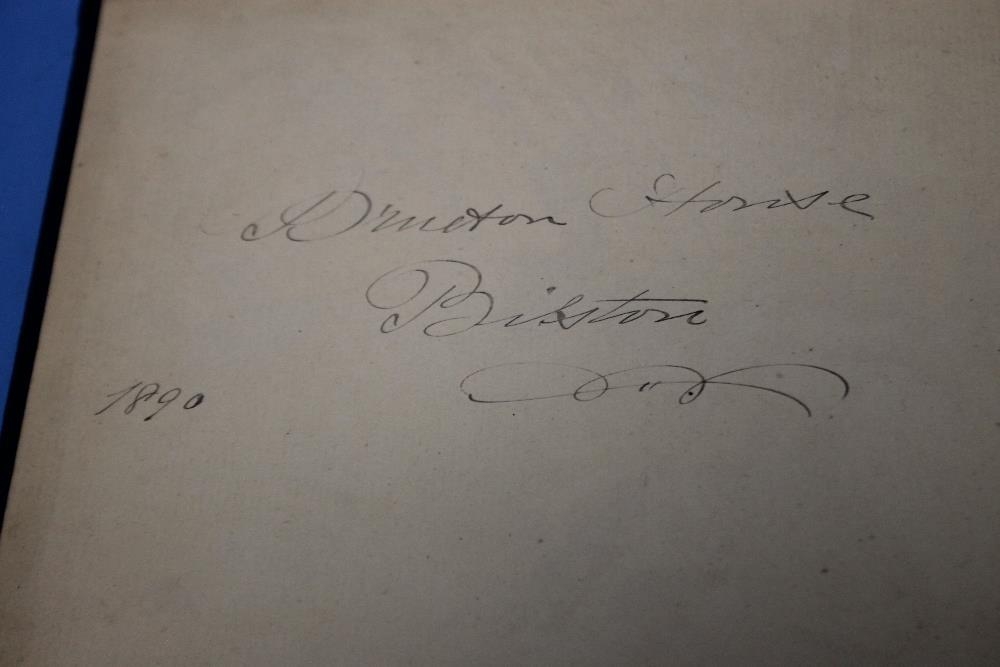 Brueton House
Bilston
1890